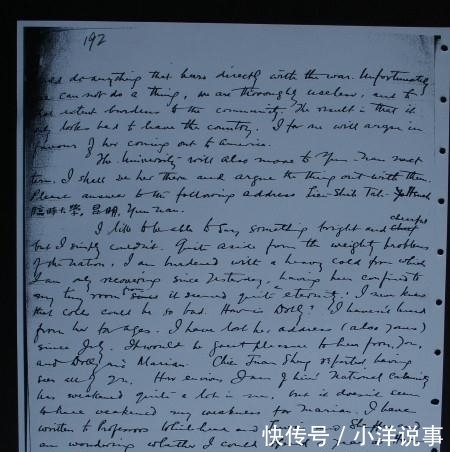 192
do anything that bears directly with the war. Unfortunately
we can not do a thing, we are thoroughly useless, and to
extent burdens to the community. The result is that it
only looks bad to leave the country. I for one will argue in
favour of her coming out to America.
The University will also move to Yun Nan next
term. I shall see her there and argue the thing out with them.
Please answer to the following address
臨時大學, 昆明, Yun Nan.
I like to be able to say something bright and cheerful
but I simply couldn't. Quite aside from the weighty problems
of the nation, I am burdened with a heavy cold from which
I am only recovering since yesterday, having been confined to
my tiny room since it seemed quite eternity. I never knew
that colds could be so bad. How is Dolly? I haven't heard
from her for ages. I have lost her address (also yours)
since July. It would be great pleasure to hear from you,
and Dolly and Marian. reported having
seen all of you. How envious I am of him! National calamity
has weakened quite a lot in me, but it doesn't seem
to have weakened my weakness for Marian. I have
written to Professors Whitehead and Sheffer and
am wondering whether I could
快传号 / 小洋说事